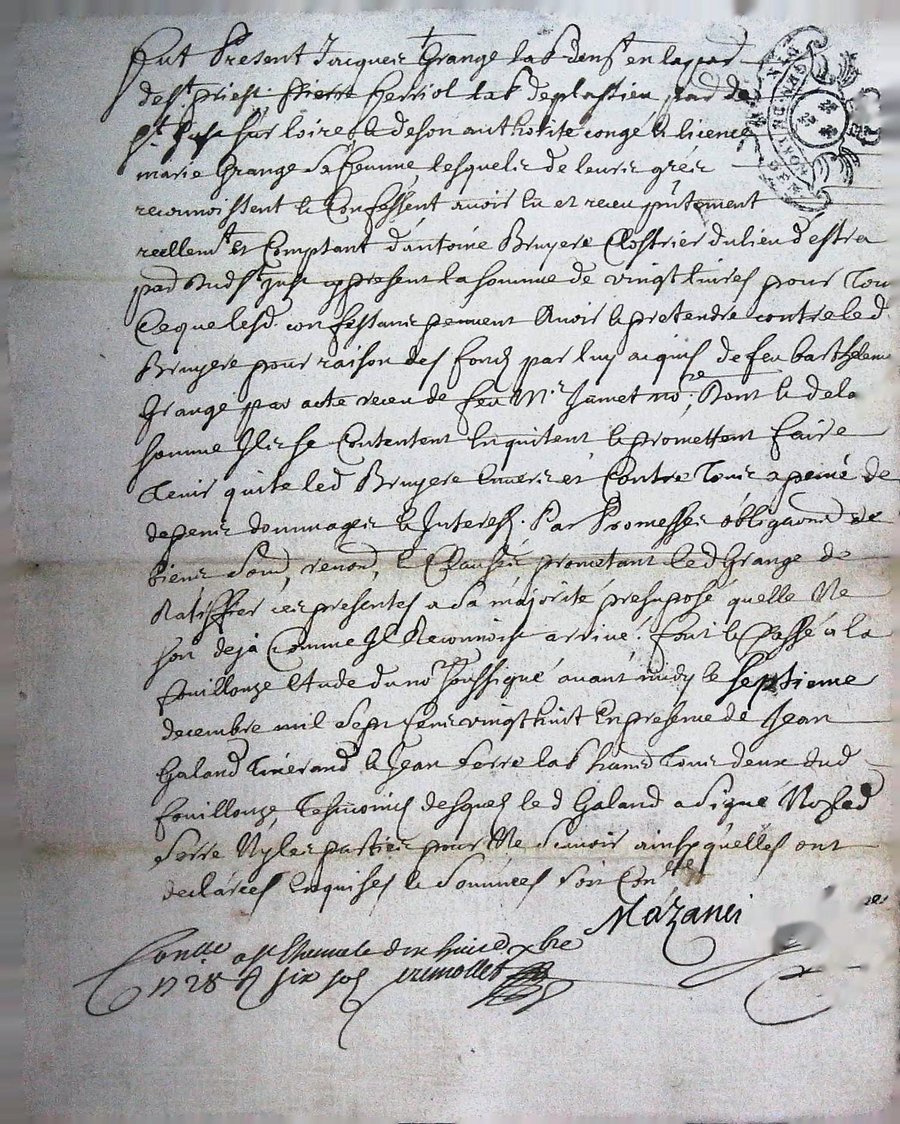 fut Present Jacques Grange lab dem.t en la par
de s.t priest. Pierre Berriol lab de plastieu par de
s.t just sur loire & de son authorité congé & licence
marie Grange sa femme, lesquels de leurs grés
reconnoissent & Confessent avoir eu et receu p̃ntement
reellem.t et Comptant d'antoine Bruyere Clostrier du lieu d'estra
par dud s.t just cy present la somme de vingt livres pour tou
Ce que lesd. confessans peuvent Avoir & pretendre contre led
Bruyere pour raison des fonds par luy acquis de feu barthelemy
Grange par acte receu de feu M.e Jamet no.re; Dont & de la
somme Ils se Contentent En quitent & promettent faire
tenir quite led Bruyere Envers et Contre tous a peine de
depens dommages & Interest. Par Promesses obligaõns de
biens soum, renonõ, & Clauses prometant led Grange de
Ratiffier ces presentes a sa majorité presuposé quelle Ne
soit deja Comme Il Reconnoist arrivé. fait & Passé a la
fouillouze Etude du no.re soussigné avant midy le septieme
decembre mil sept cens vingt huit En presence de Jean
Galand tixerand & Jean ferre lab tous deux dud
fouillouze, tesmoins desquels led Galand a signé Non led
ferre Ny les parties pour Ne scavoir ainsy qu'elles ont
declarées Enquises & sommées soit Con.lle
Mazanci
Con.lle a St le dix huict xbre
1728 R six sols
GEN. DE LYON